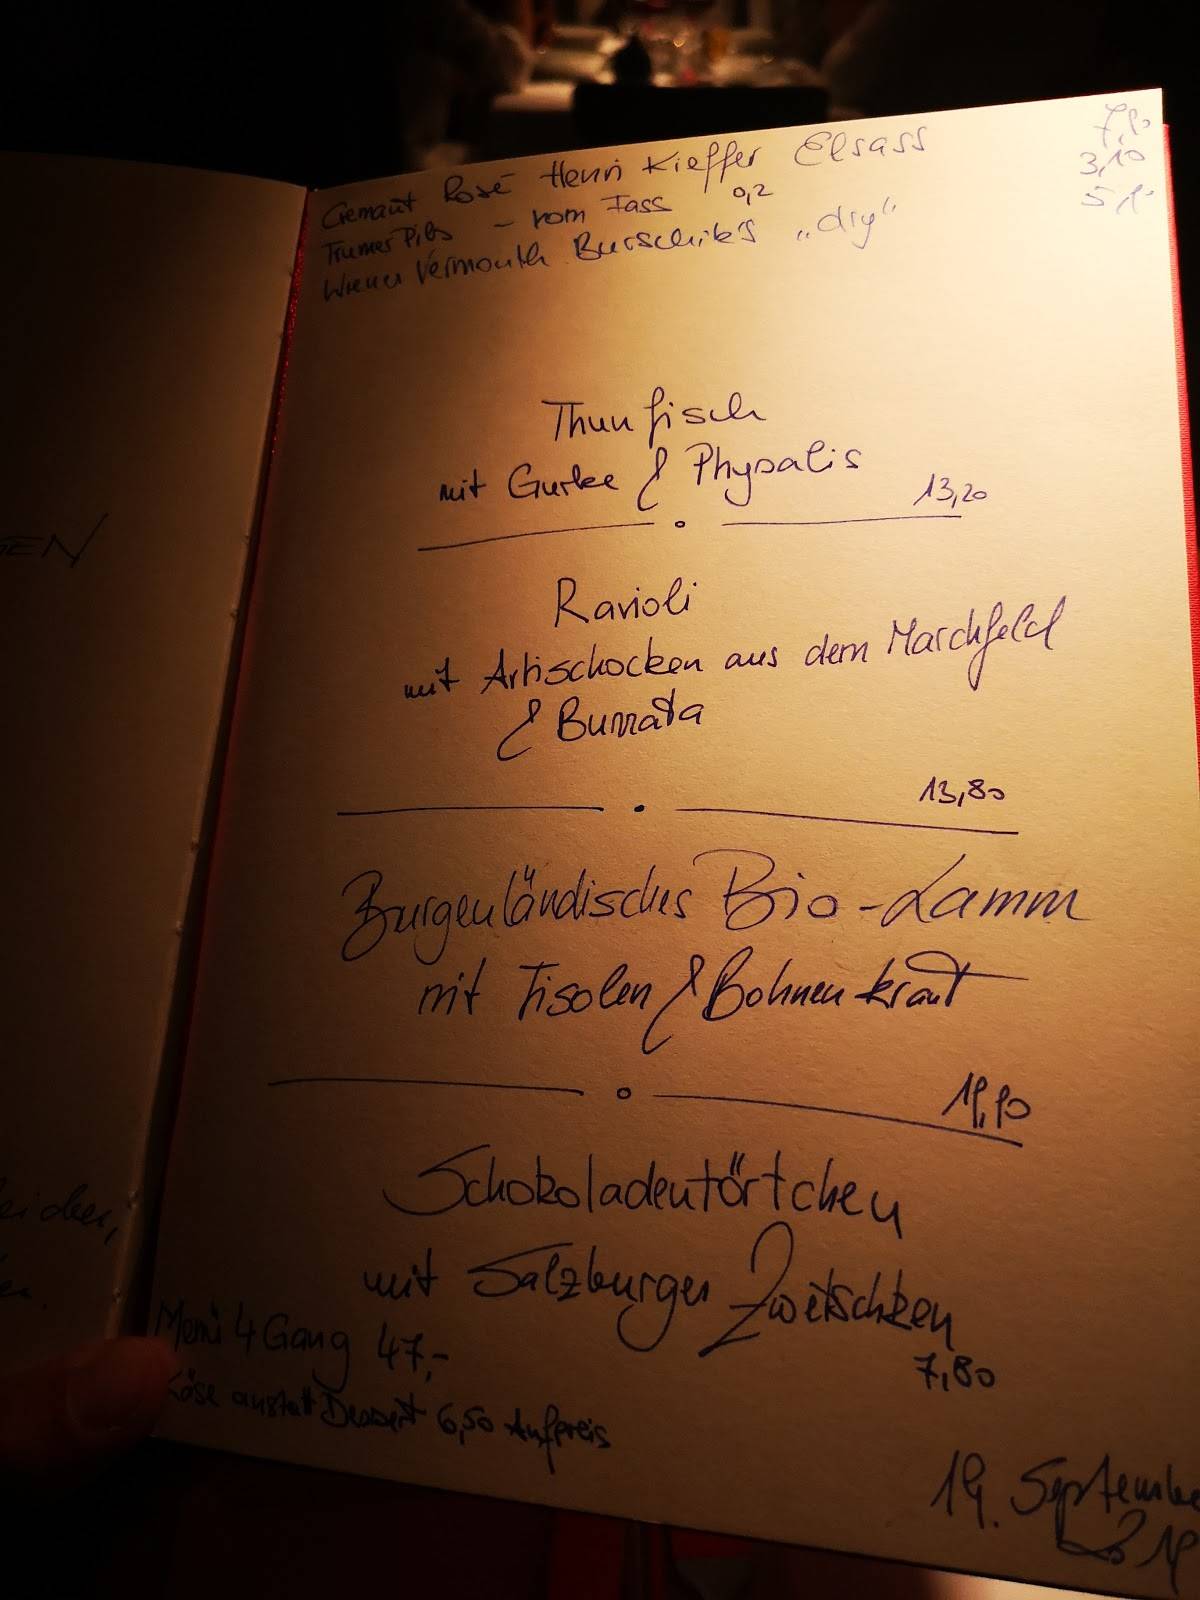 Cremant Rosé Henri Kieffer Elsass 7,90
Trumer Pils – vom Fass 0,2 3,10
Wiener Vermouth Burschik's „dry“
Thunfisch
mit Gurke & Physalis
13,20
Ravioli
mit Artischocken aus dem Marchfeld
& Burrata
13,80
Burgenländisches Bio-Lamm
mit Fisolen & Bohnenkraut
19,90
Schokoladentörtchen
mit Salzburger Zwetschken
7,80
Menü 4 Gang 47,-
Käse anstatt Dessert 6,50 Aufpreis
19. Septembe
2019